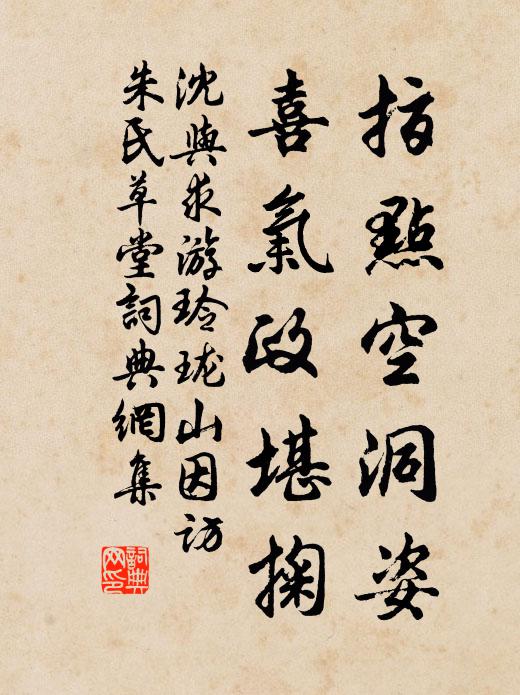 指點空洞姿
喜氣政堪掬
沈與求游玲瓏山因訪
朱氏草堂詞典網集
詞典网印